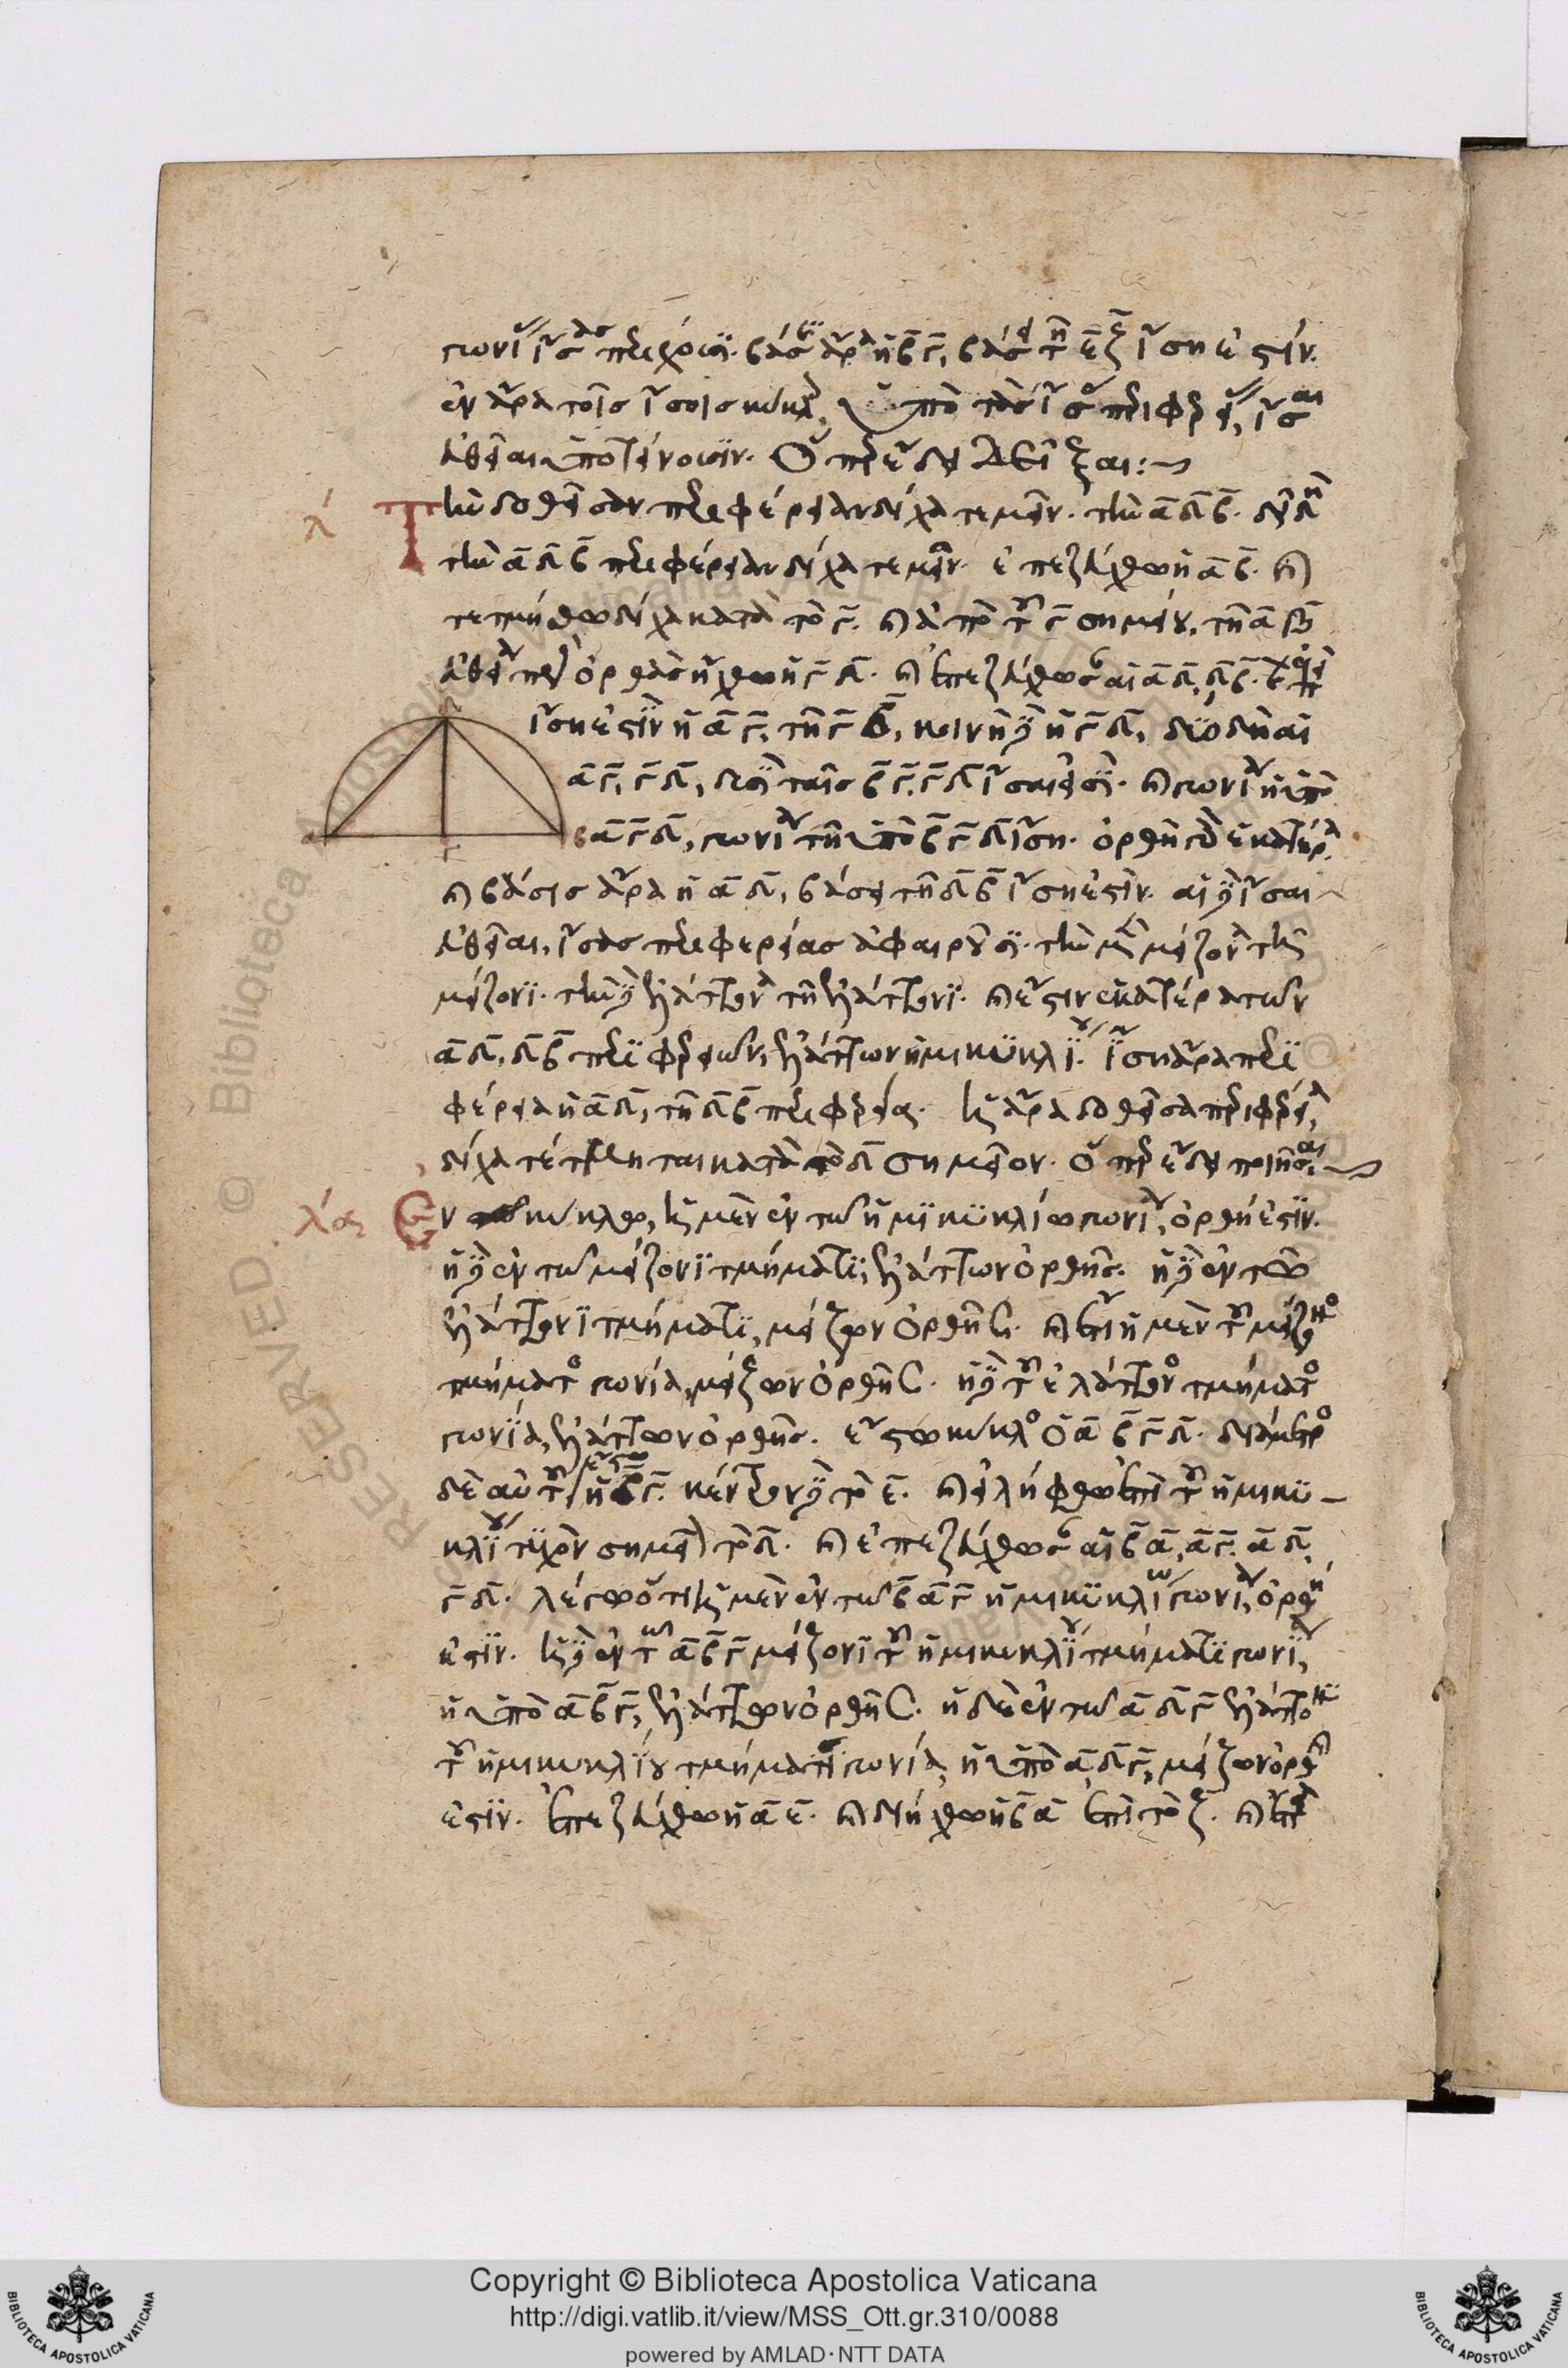 γωνίας ἴσας περιέχουσι. βάσις ἄρα ἡ βγ, βάσει τῇ εζ ἴση ἐστίν.
ἐν ἄρα τοῖς ἴσοις κύκλοις, ὑπὸ τὰς ἴσας περιφερείας, ἴσαι
εὐθεῖαι ὑποτείνουσιν. ὅπερ ἔδει δεῖξαι:~
λ Τὴν δοθεῖσαν περιφέρειαν δίχα τεμεῖν. τὴν αδβ. δεῖ δὴ
τὴν αδβ περιφέρειαν δίχα τεμεῖν. ἐπεζεύχθω ἡ αβ. καὶ
τετμήσθω δίχα κατὰ τὸ γ. καὶ ἀπὸ τοῦ γ σημείου, τῇ αβ
εὐθείᾳ πρὸς ὀρθὰς ἤχθω ἡ γδ. καὶ ἐπεζεύχθωσαν αἱ αδ, δβ. καὶ ἐπεὶ
ἴση ἐστὶν ἡ αγ, τῇ γβ, κοινὴ δὲ ἡ γδ, δύο δὴ αἱ
αγ, γδ, δυσὶ ταῖς βγ, γδ ἴσαι εἰσί. καὶ γωνία ἡ ὑπὸ
αγδ, γωνίᾳ τῇ ὑπὸ βγδ ἴση. ὀρθὴ γὰρ ἑκατέρα.
καὶ βάσις ἄρα ἡ αδ, βάσει τῇ δβ ἴση ἐστίν. αἱ δὲ ἴσαι
εὐθεῖαι, ἴσας περιφερείας ἀφαιροῦσι. τὴν μὲν μείζονα τῇ
μείζονι. τὴν δὲ ἐλάττονα τῇ ἐλάττονι. καὶ ἔστιν ἑκατέρα τῶν
αδ, δβ περιφερειῶν, ἐλάττων ἡμικυκλίου. ἴση ἄρα περι
φέρεια ἡ αδ, τῇ δβ περιφερείᾳ. ἡ ἄρα δοθεῖσα περιφέρεια,
δίχα τέτμηται κατὰ τὸ δ σημεῖον. ὅπερ ἔδει ποιῆσαι
λα Ἐν κύκλῳ, ἡ μὲν ἐν τῷ ἡμικυκλίῳ γωνία, ὀρθή ἐστιν.
ἡ δὲ ἐν τῷ μείζονι τμήματι, ἐλάττων ὀρθῆς. ἡ δὲ ἐν τῷ
ἐλάττονι τμήματι, μείζων ὀρθῆς. καὶ ἔτι ἡ μὲν τοῦ μείζονος
τμήματος γωνία, μείζων ὀρθῆς. ἡ δὲ τοῦ ἐλάττονος τμήματος
γωνία, ἐλάττων ὀρθῆς. ἔστω κύκλος ὁ αβγδ. διάμετρος
δὲ αὐτοῦ ἔστω ἡ βγ. κέντρον δὲ τὸ ε. καὶ εἰλήφθω ἐπὶ τοῦ ἡμικυ
κλίου τυχὸν σημεῖον τὸ δ. καὶ ἐπεζεύχθωσαν αἱ βα, αγ, αδ,
γδ. λέγω ὅτι ἡ μὲν ἐν τῷ βαγ ἡμικυκλίῳ γωνία, ὀρθή
ἐστιν. ἡ δὲ ἐν τῷ αβγ μείζονι τοῦ ἡμικυκλίου τμήματι γωνία,
ἡ ὑπὸ αβγ, ἐλάττων ὀρθῆς. ἡ δὲ ἐν τῷ αδγ ἐλάττονι
τοῦ ἡμικυκλίου τμήματι γωνία, ἡ ὑπὸ αδγ, μείζων ὀρθῆς
ἐστιν. ἐπεζεύχθω ἡ αε. καὶ διήχθω ἡ βα ἐπὶ τὸ ζ. καὶ ἐπεὶ
Copyright © Biblioteca Apostolica Vaticana
http://digi.vatlib.it/view/MSS_Ott.gr.310/0088
powered by AMLAD·NTT DATA